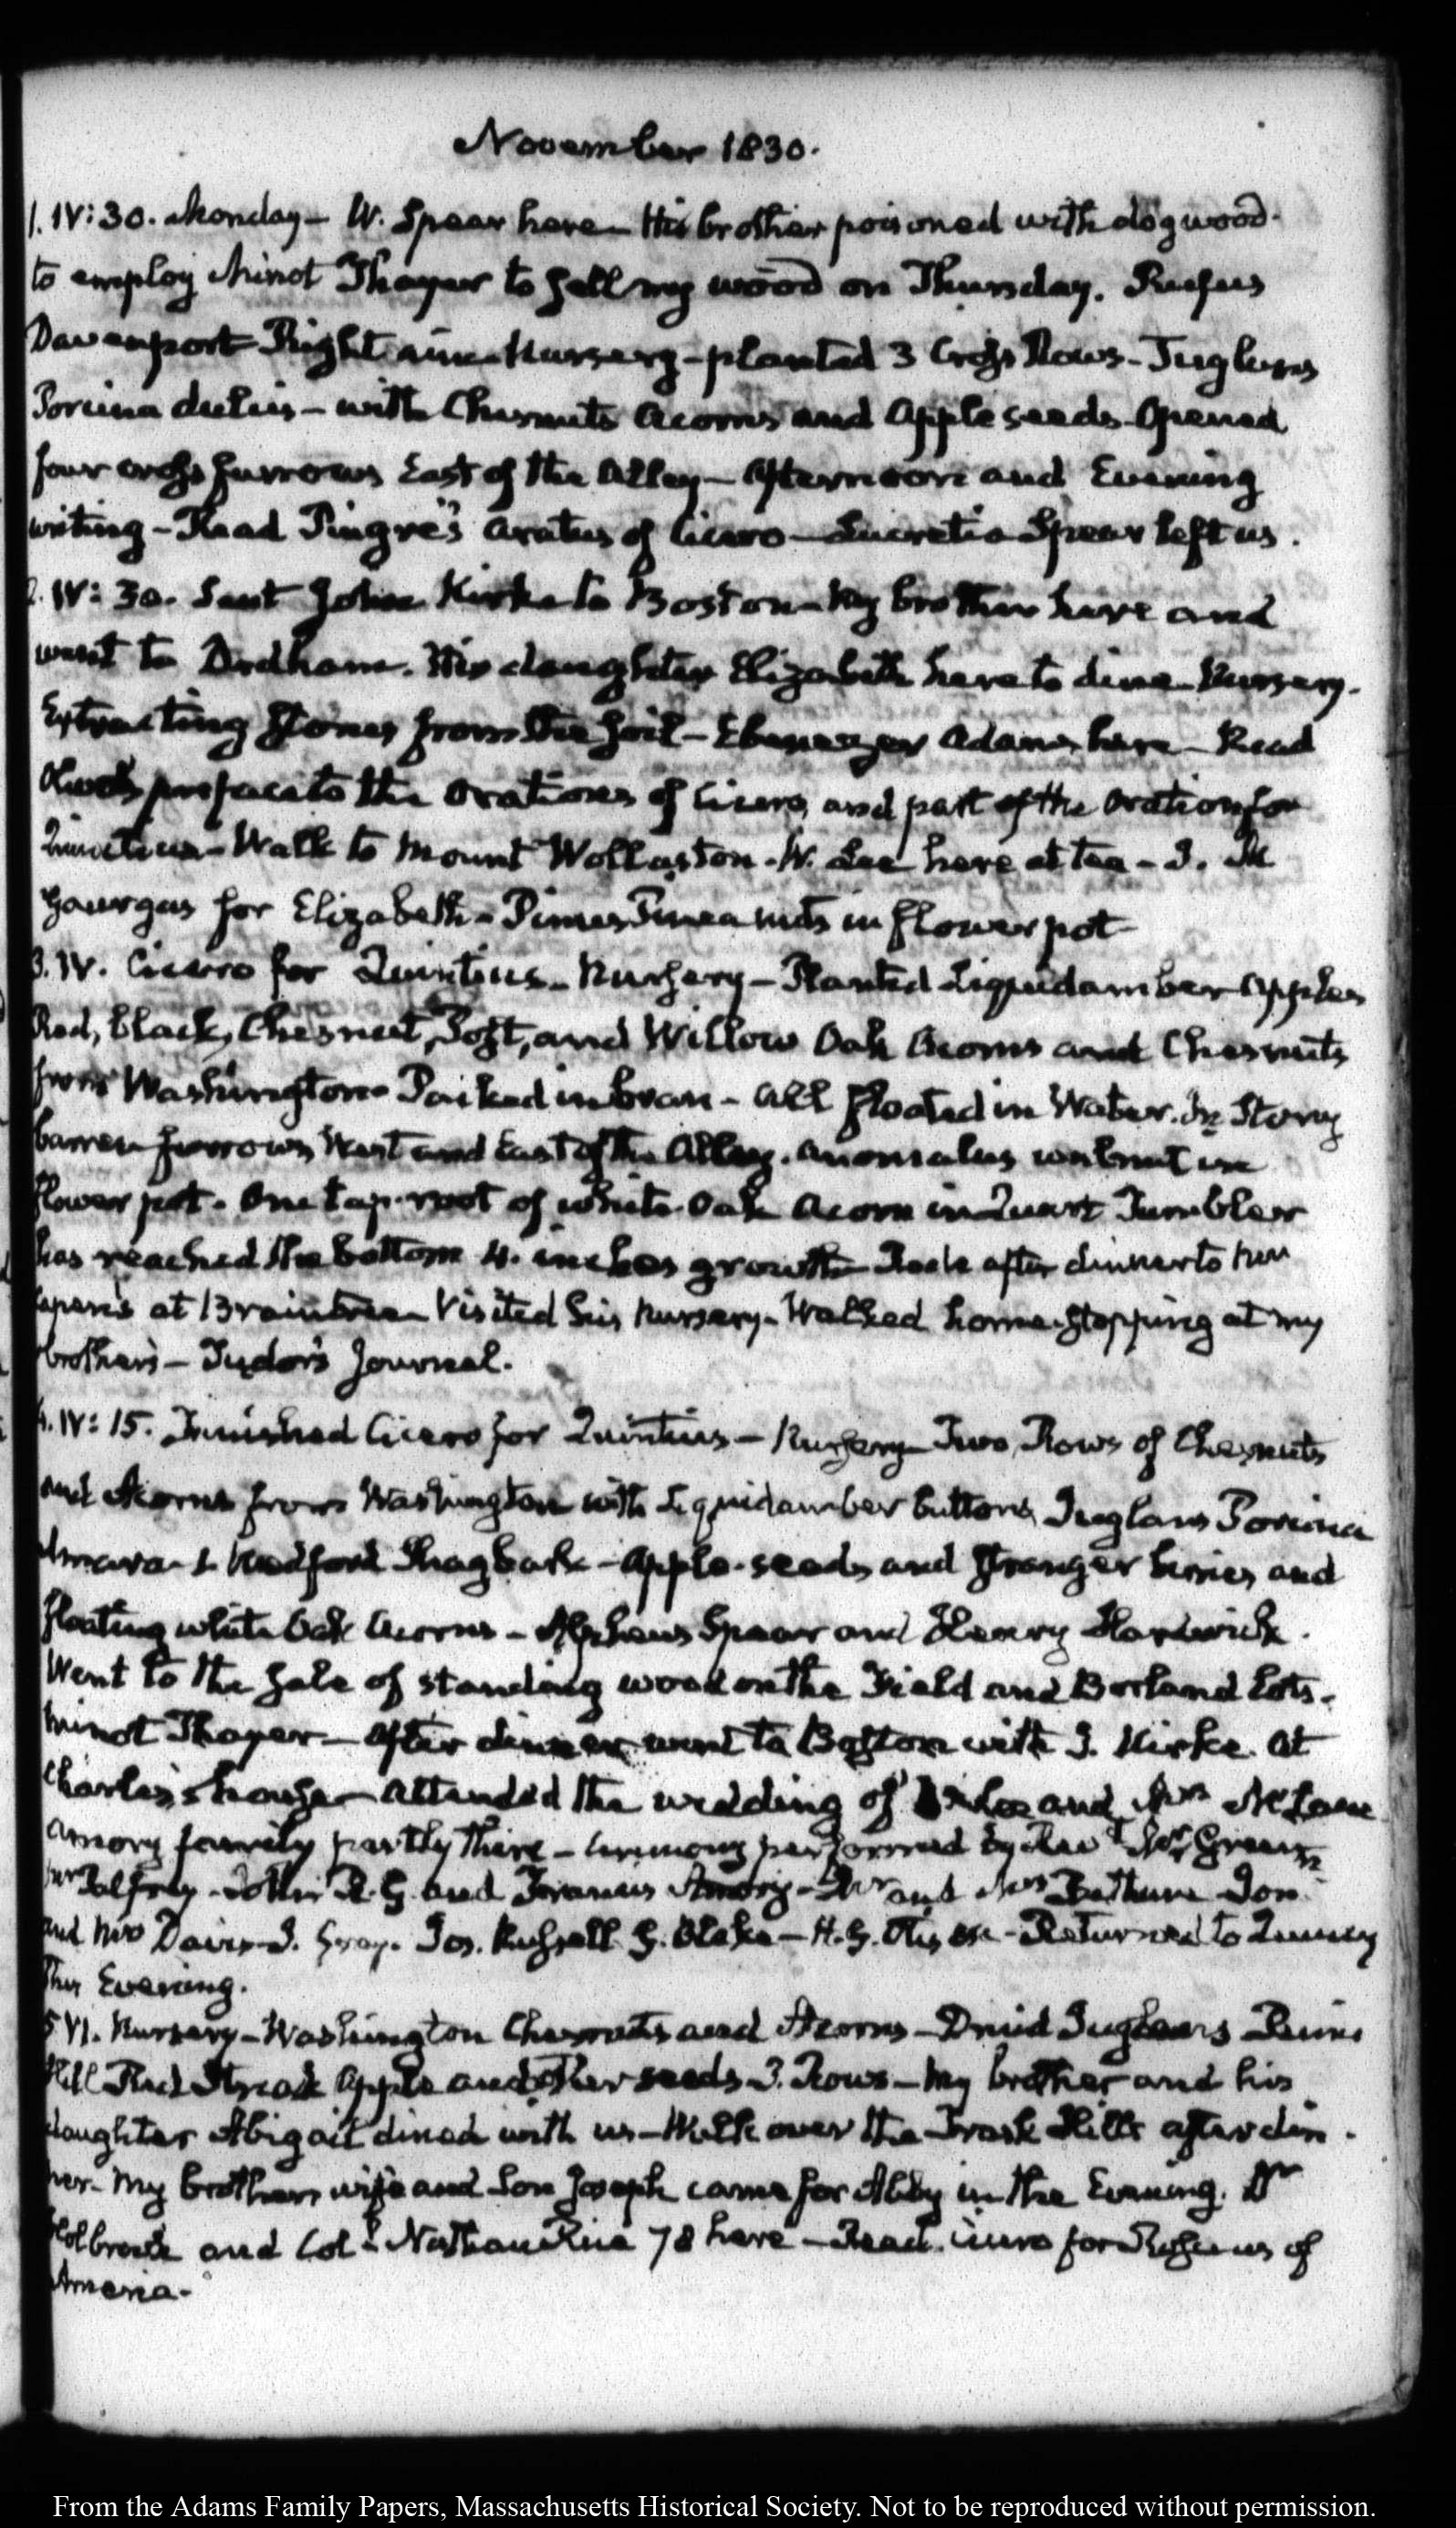 November 1830.
1. IV: 30. Monday — W. Spear here — His brother poisoned with dogwood.
to employ Minot Thayer to sell my wood on Thursday. Rufus
Davenport Nursery — planted 3 Cross Rows — Juglans
Porcina dulcis — with Chesnuts Acorns and Apple seeds. Opened
four cross furrows East of the Alley — Afternoon and Evening
writing — Read Pingré's Aratus of Cicero — Lucretia Spear left us.
2. IV: 30. Sent John Kirke to Boston — My brother here and
went to Dedham. His daughter Elizabeth here to dine — Nursery.
Extracting stones from the soil — Ebenezer Adams here — Read
Olivet's preface to the Orations of Cicero, and part of the Oration for
Quinctius — Walk to Mount Wollaston. W. Lee here at tea — J. M
Gourgas for Elizabeth — Pinea nuts in flower pot —
3. IV. Cicero for Quintius — Nursery — Planted Liquidamber Apples
Red, black, Chesnut, Post, and Willow Oak Acorns and Chesnuts
from Washington — Packed in bran — All floated in Water. In Stony
barren furrows West and East of the Alley. Anomalus walnut in
flower pot. One tap-root of white Oak Acorn in Quart Tumbler
has reached the bottom 4. inches growth — Rode after dinner to
at Braintree — Visited his nursery — Walked home stopping at my
brother's — Tudor's Journal.
4. IV: 15. Finished Cicero for Quintius — Nursery — Two Rows of Chesnuts
and Acorns from Washington with Liquidamber buttons, Juglans Porcina
Amara & Medford Shagbark — Apple-seeds and stranger berries and
floating white Oak Acorns — Alpheus Spear and Henry Hardwick.
Went to the sale of standing wood on the Field and Borland Lots.
Minot Thayer — After dinner went to Boston with J. Kirke. At
Charles's house — attended the wedding of Lee and Mrs McLane
Amory family partly there — Ceremony performed by Revd Mr Greenw
Mr Palfrey — John R. G. and Francis Amory — Mr and Mrs Bethune Jon
and Mrs Davis — J. Gray. Jos. Russell G. Blake — H. G. Otis &c — Returned to Quincy
this Evening.
5 VI. Nursery — Washington Chesnuts and Acorns — Druid Juglans Penns
Hill Red Streak Apple and other seeds 3. Rows — My brother and his
daughter Abigail dined with us — Walk over the Hills after din-
ner — My brothers wife and Son Joseph came for Abby in the Evening. Dr
Holbrook and Coll Nathan Rice 78 here — Read Cicero for Roscius of
Ameria.
From the Adams Family Papers, Massachusetts Historical Society. Not to be reproduced without permission.